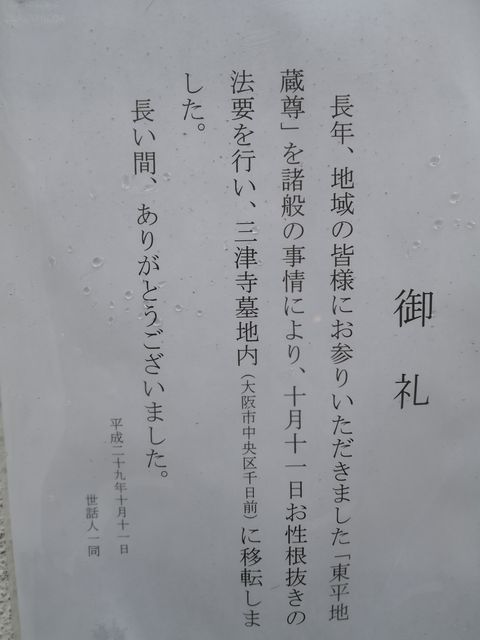 御礼
長年、地域の皆様にお参りいただきました「東平地
蔵尊」を諸般の事情により、十月十一日お性根抜きの
法要を行い、三津寺墓地内（大阪市中央区千日前）に移転しま
した。
長い間、ありがとうございました。
平成二十九年十月十一日
世話人一同